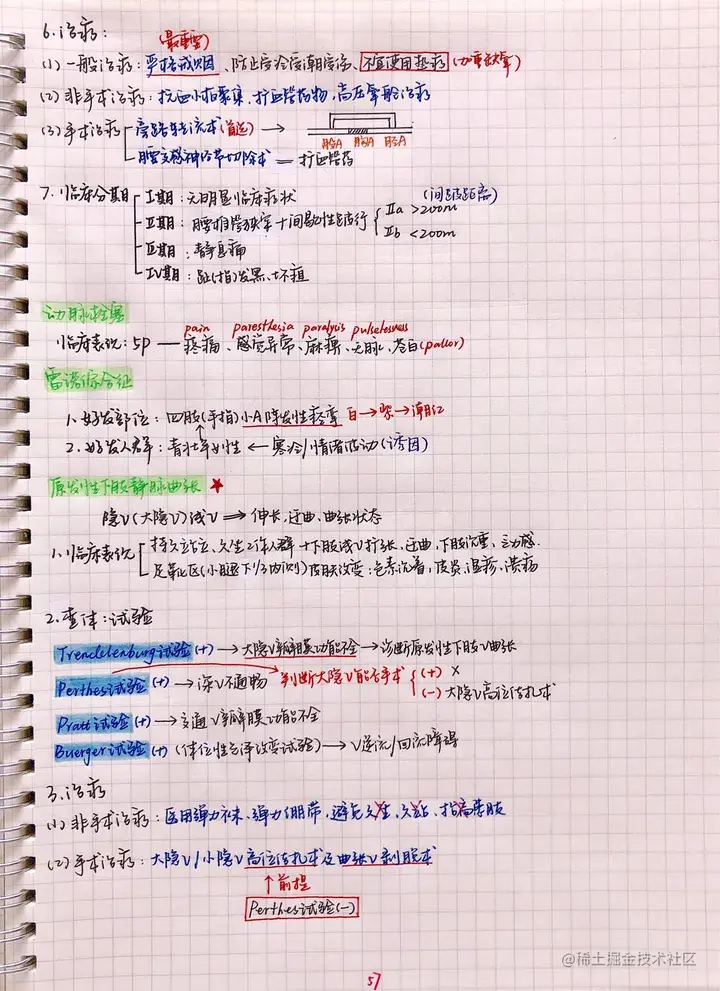 6.治疗:
(最重要)
(1) 一般治疗: 严格戒烟、防止受冷受潮受伤、不宜使用热疗 (加重缺氧)
(2) 非手术治疗: 抗血小板聚集、扩血管药物、高压氧舱治疗
(3) 手术治疗 旁路转流术(首选) →
股A 腘A 胫A
腰交感神经节切除术 = 扩血管药
7. 临床分期 I期: 无明显临床症状 (间跛距离)
II期: 腰椎管狭窄+间歇性跛行 IIa >200m
IIb <200m
III期: 静息痛
IV期: 趾(指)发黑、坏疽
动脉栓塞
pain paresthesia paralysis pulselessness
临床表现: 5P — 疼痛、感觉异常、麻痹、无脉、苍白(pallor)
雷诺综合征
1. 好发部位: 四肢(手指)小A阵发性痉挛 白→紫→潮红
2. 好发人群: 青壮年女性 ← 寒冷/情绪波动(诱因)
原发性下肢静脉曲张 ★
隐V(大隐V)浅V ⇒ 伸长、迂曲、曲张状态
1. 临床表现 持久站立、久坐工作人群+下肢浅V扩张、迂曲、下肢沉重、乏力感.
足靴区(小腿下1/3内侧)皮肤改变: 色素沉着, 皮炎, 湿疹, 溃疡
2. 查体: 试验
Trendelenburg试验(+) → 大隐V瓣膜功能不全 → 诊断原发性下肢V曲张
Perthes试验(+) → 深V不通畅 判断大隐V能否手术 (+) ×
(-) 大隐V高位结扎术
Pratt试验(+) → 交通V瓣膜功能不全
Buerger试验(+) (体位性色泽改变试验) → V逆流/回流障碍
3.治疗
(1) 非手术治疗: 医用弹力袜、弹力绷带、避免久坐、久站、抬高患肢
(2) 手术治疗: 大隐V/小隐V高位结扎术及曲张V剥脱术
↑前提
Perthes试验(-)
57
@稀土掘金技术社区